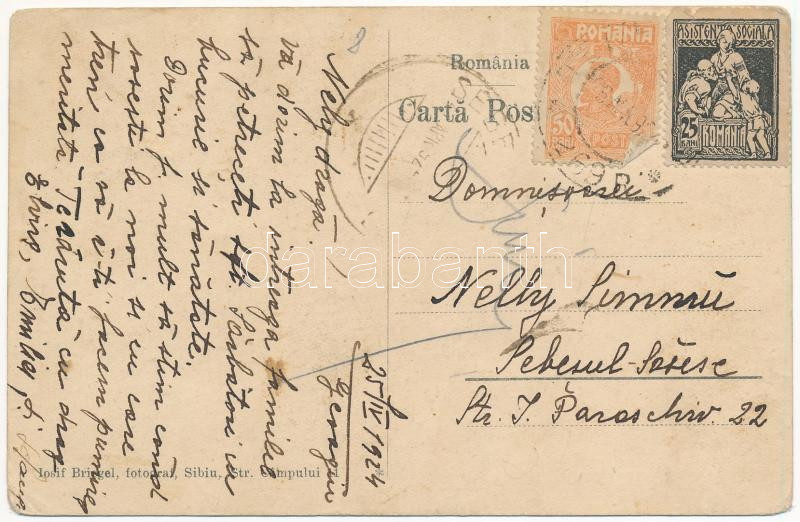 8
România
Cartă Post
ROMANIA
50
POST
ASISTENȚA SOCIALA
25
BANI
ROMÂNIA
Domnișoarei
Nelly Simmu
Sebesul-Sésesc
Str. I. Paraschiv. 22
Georgiu
25/IV 1924
Nelly dragă!
Vă dorim la întreaga familie
să petreceți sft. Sărbători în
bucurie și sănătate.
Dorim f. mult să știm când
sosește la noi și cu care
tren ca să-ți facem primirea
meritată. Te sărută cu drag
Elvira, Emilia,
Iosif Briegel, fotograf, Sibiu, Str. Câmpului 11
darabanth